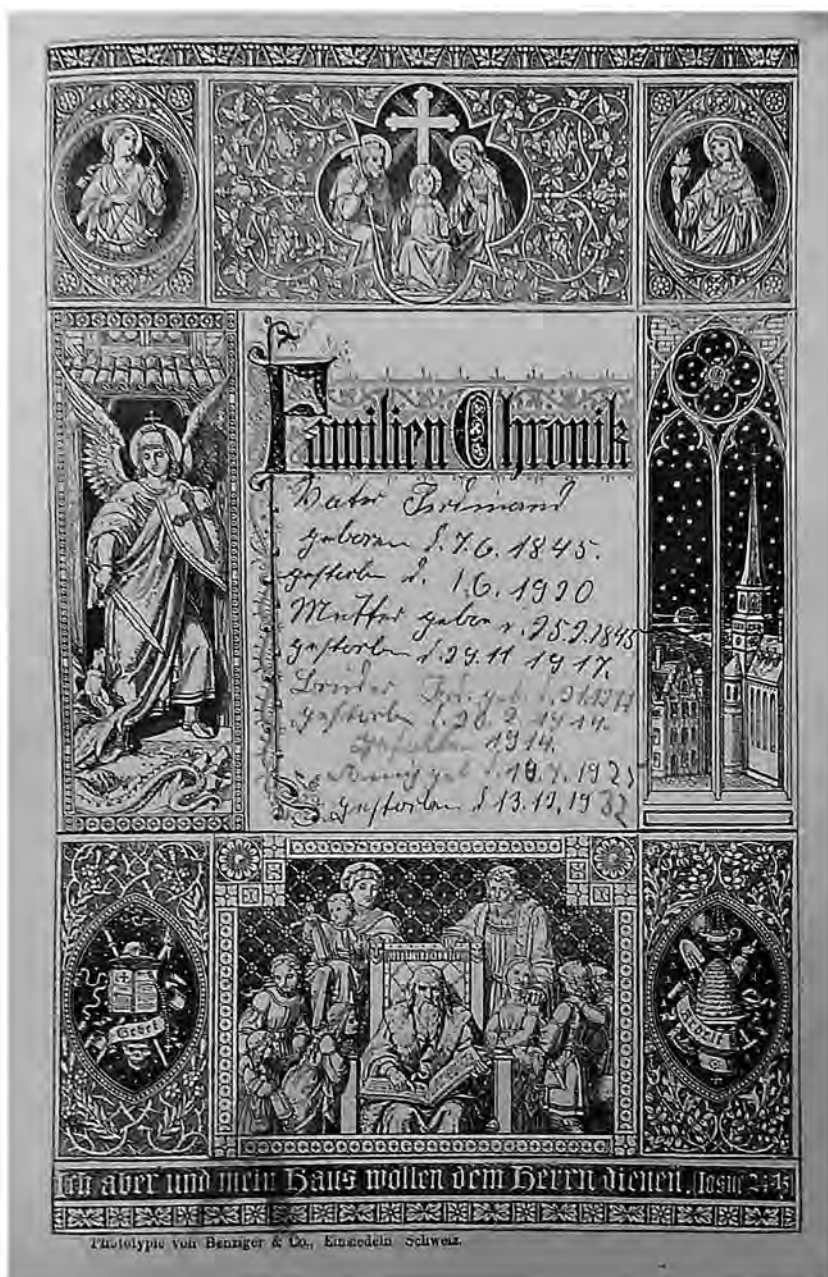 Familien Chronik
Vater Ferdinand
geboren d. 7.6. 1845.
gestorben d. 1.6. 1920
Mutter geboren d. 25.2.1845
gestorben d. 29.11 1917.
Bruder Ferd. geb. d.
gestorben d. 1914.
gefallen 1914.
geb d. 19
gestorben d 13.12.19
Gebet
Arbeit
Ich aber und mein Haus wollen dem Herrn dienen. Josue 24.15
Phototypie von Benziger & Co., Einsiedeln Schweiz.